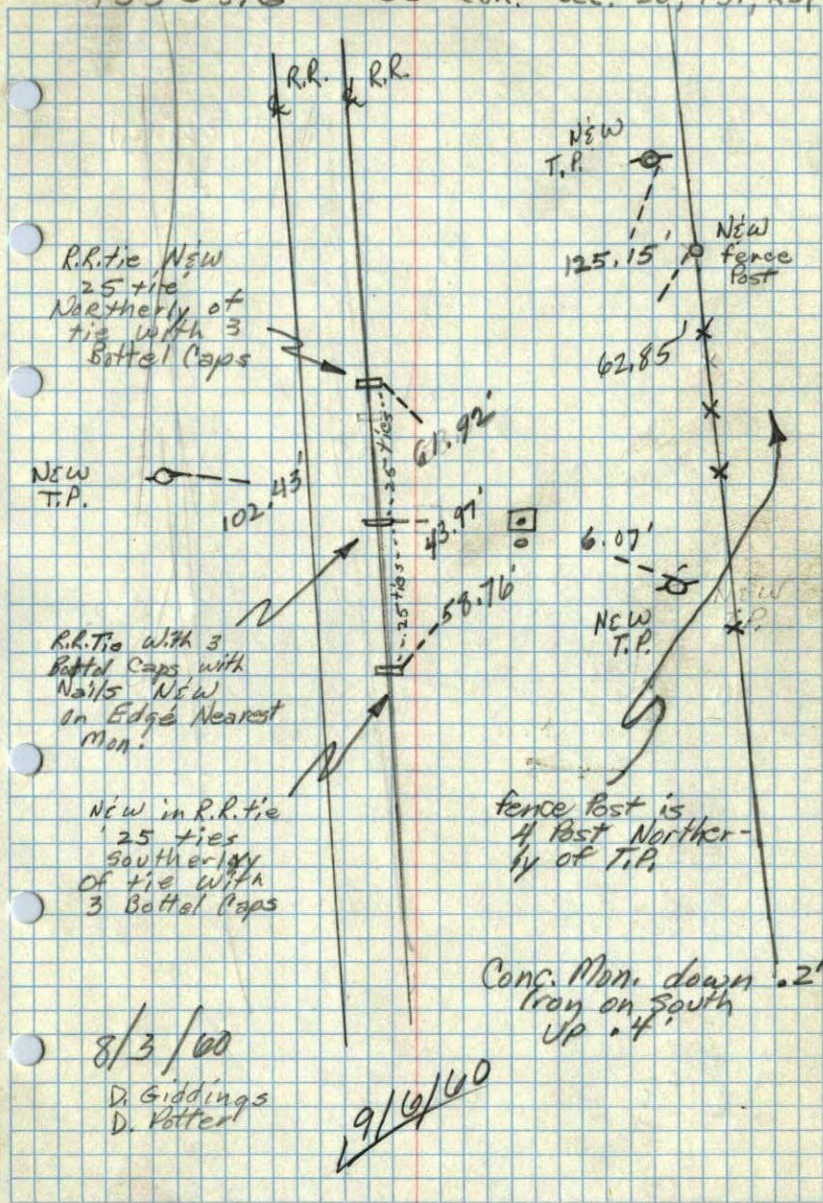 COR.
R.R.
R.R.
N&W
T.P.
125.15'
N&W
fence
Post
62.85'
R.R. tie N&W
25 tie
Northerly of
tie with 3
Bottel Caps
25 ties
N&W
T.P.
102.43'
43.97'
6.07'
N&W
T.P.
25 ties
58.76'
R.R. Tie With 3
Bottel Caps with
Nails N&W
on Edge Nearest
Mon.
N&W in R.R. tie
25 ties
Southerly
Of tie with
3 Bottel Caps
fence Post is
4 Post Norther-
ly of T.P.
Conc. Mon. down .2'
Iron on South
Up .4'
8/3/60
D. Giddings
D. Potter
9/6/60